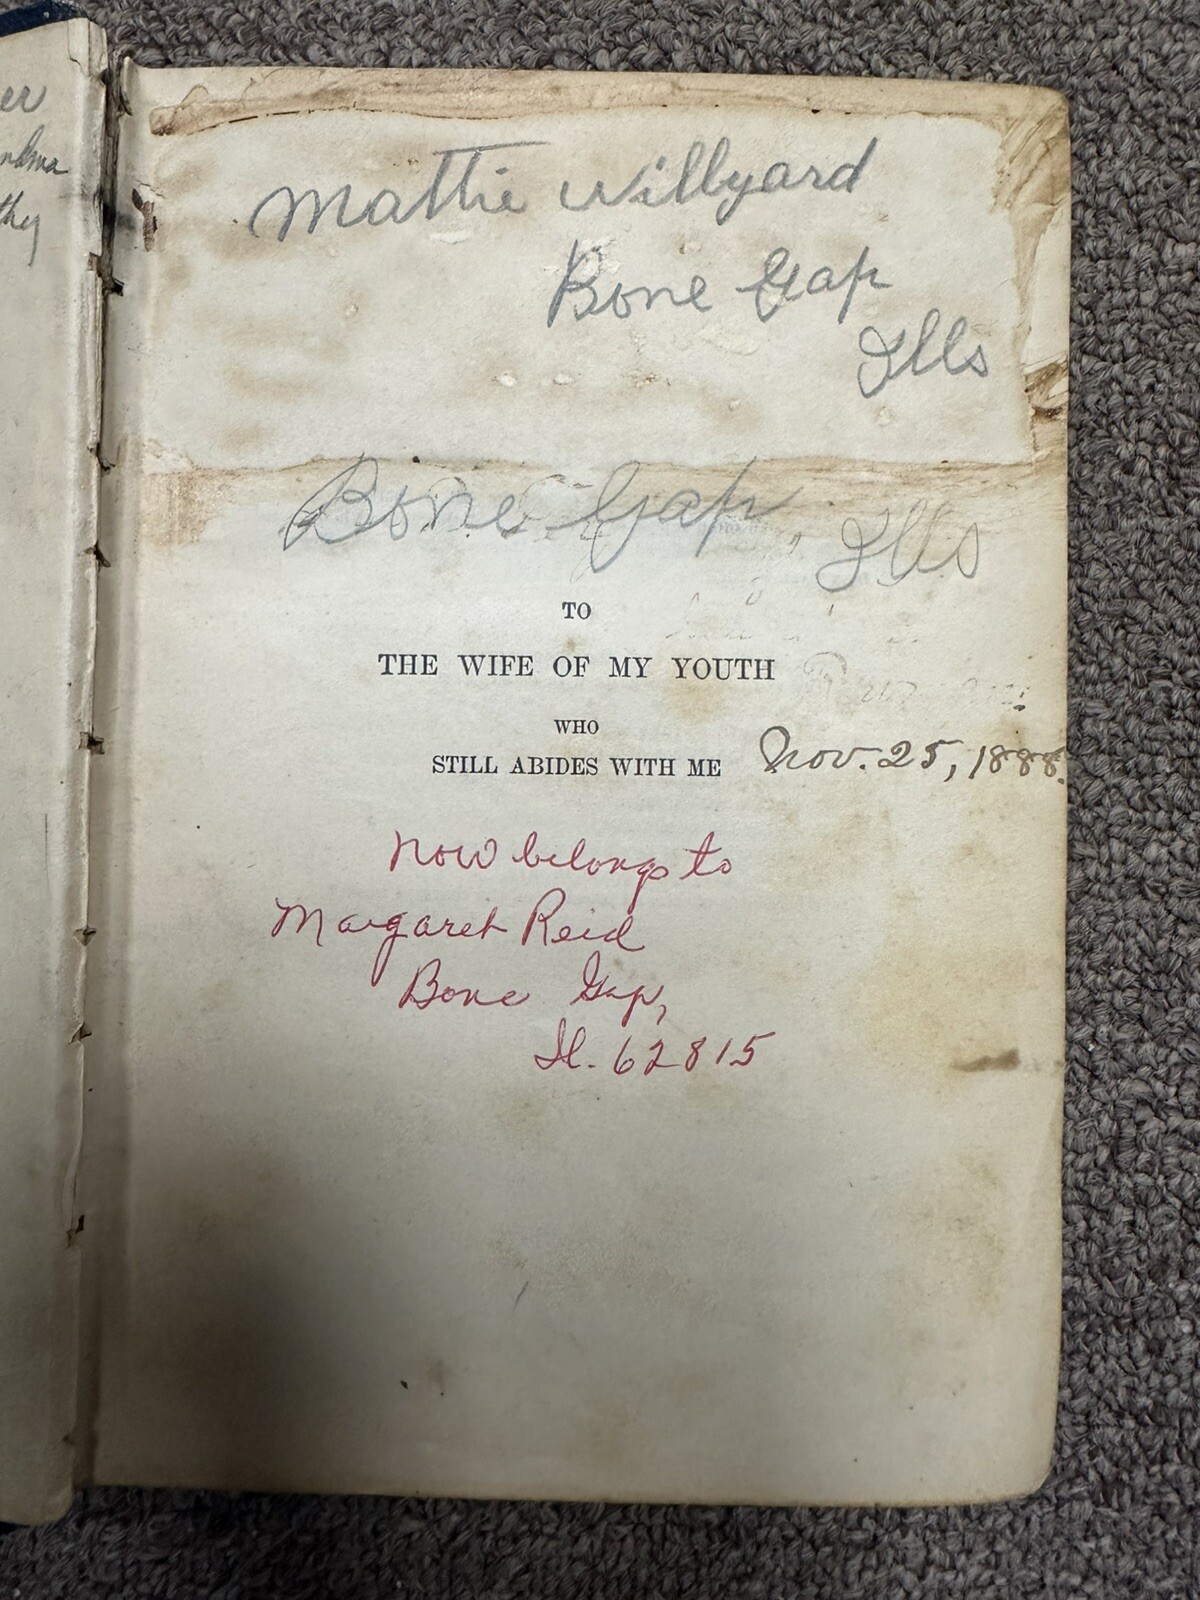 er
ndma
they
Mattie Willyard
Bone Gap
Ills
Bone Gap, Ills
TO
THE WIFE OF MY YOUTH
WHO
STILL ABIDES WITH ME
Nov. 25, 1888.
Now belongs to
Margaret Reid
Bone Gap,
Il. 62815